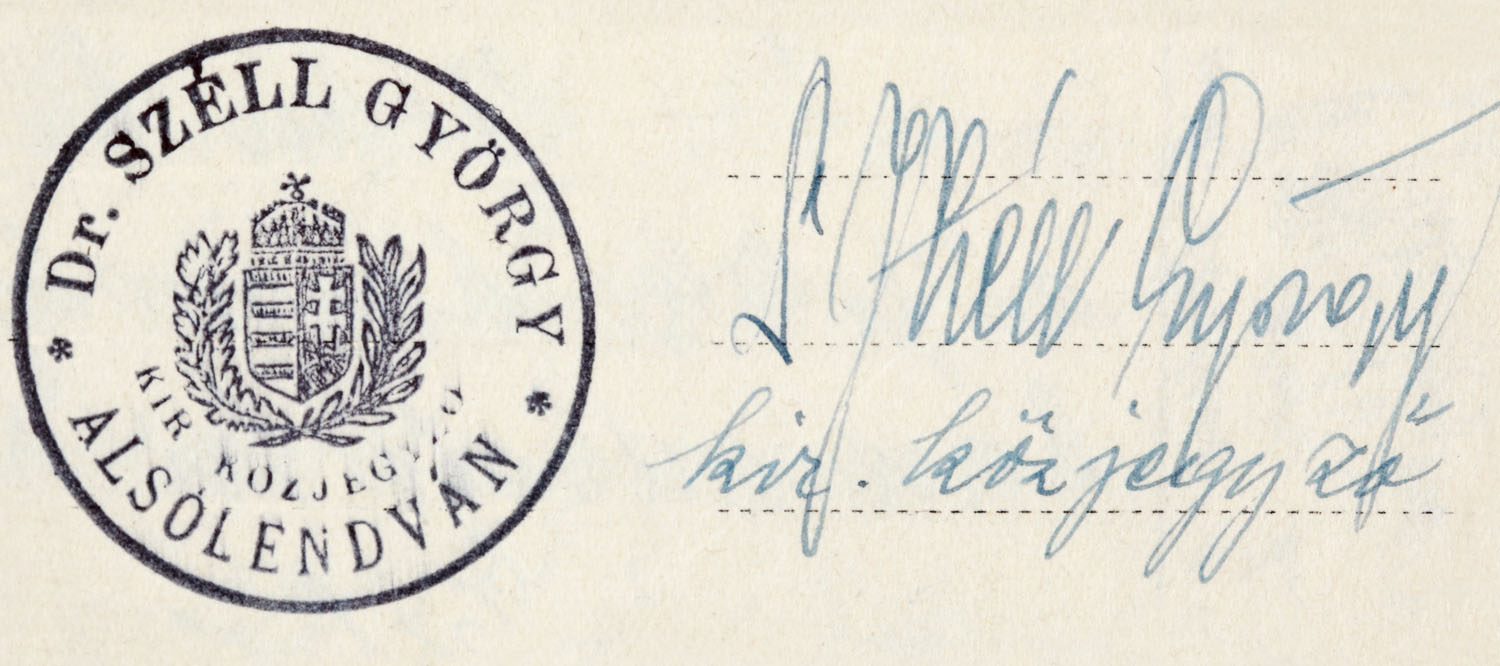 Dr. SZÉLL GYÖRGY
KIR KÖZJEGYZŐ
* ALSÓLENDVÁN *
Széll György
kir. közjegyző